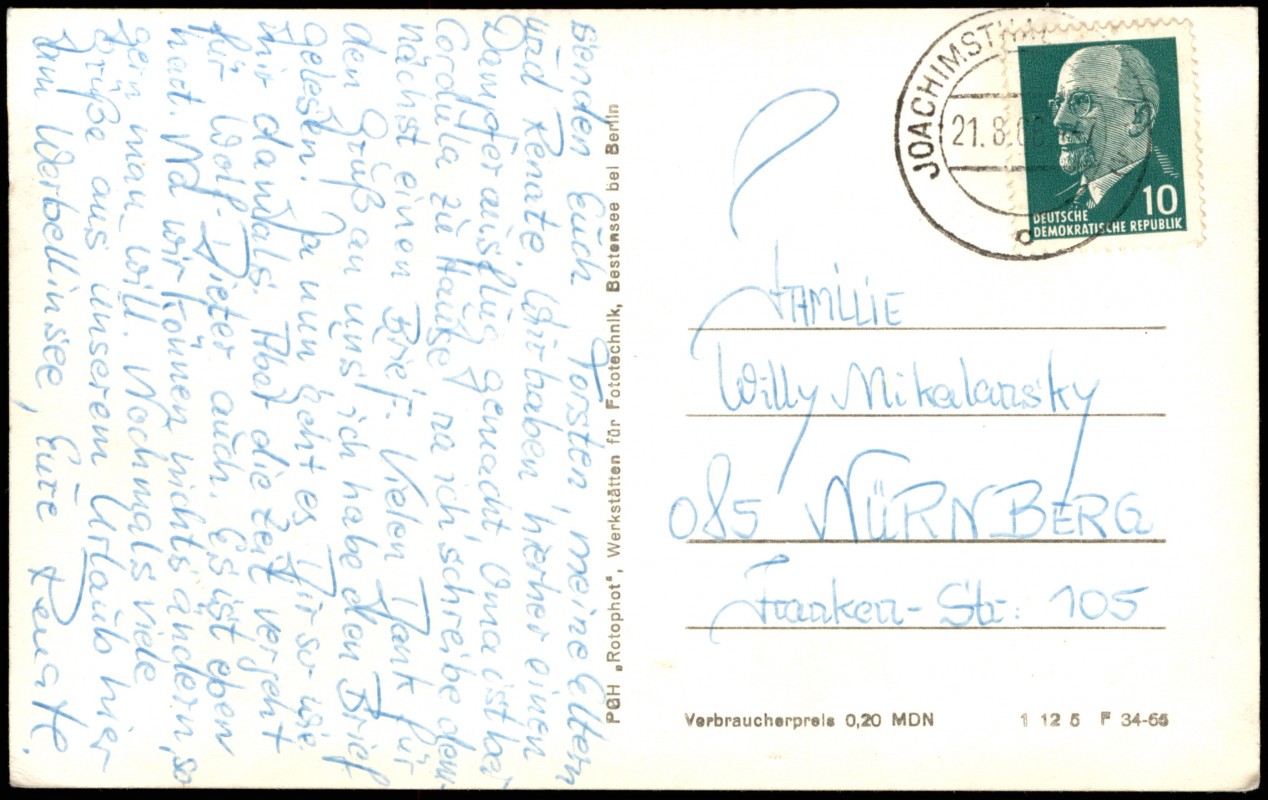 senden Euch Torsten, meine Eltern
und Renate. Wir haben hierher einen
Dampferausflug gemacht, Oma ist bei
Cordula zu Hause, na ich schreibe dem-
nächst einen Brief. Vielen Dank für
den Gruß an uns, ich habe den Brief
gelesen. Ja nun geht es Dir so wie
mir damals. Aber die Zeit vergeht
für Wolf-Dieter auch. Es ist eben
hart. Na wir können nichts ändern, so
gern man will. Nochmals viele
Grüße aus unserem Urlaub hier
zum Werbellinsee, Eure Renate.
PGH „Rotophot“, Werkstätten für Fototechnik, Bestensee bei Berlin
JOACHIMSTH
21.8.6
10
DEUTSCHE
DEMOKRATISCHE REPUBLIK
FAMILIE
Willy Mikalarsky
085 NÜRNBERG
Franken-Str. 105
Verbraucherpreis 0,20 MDN 1 12 5 F 34-65